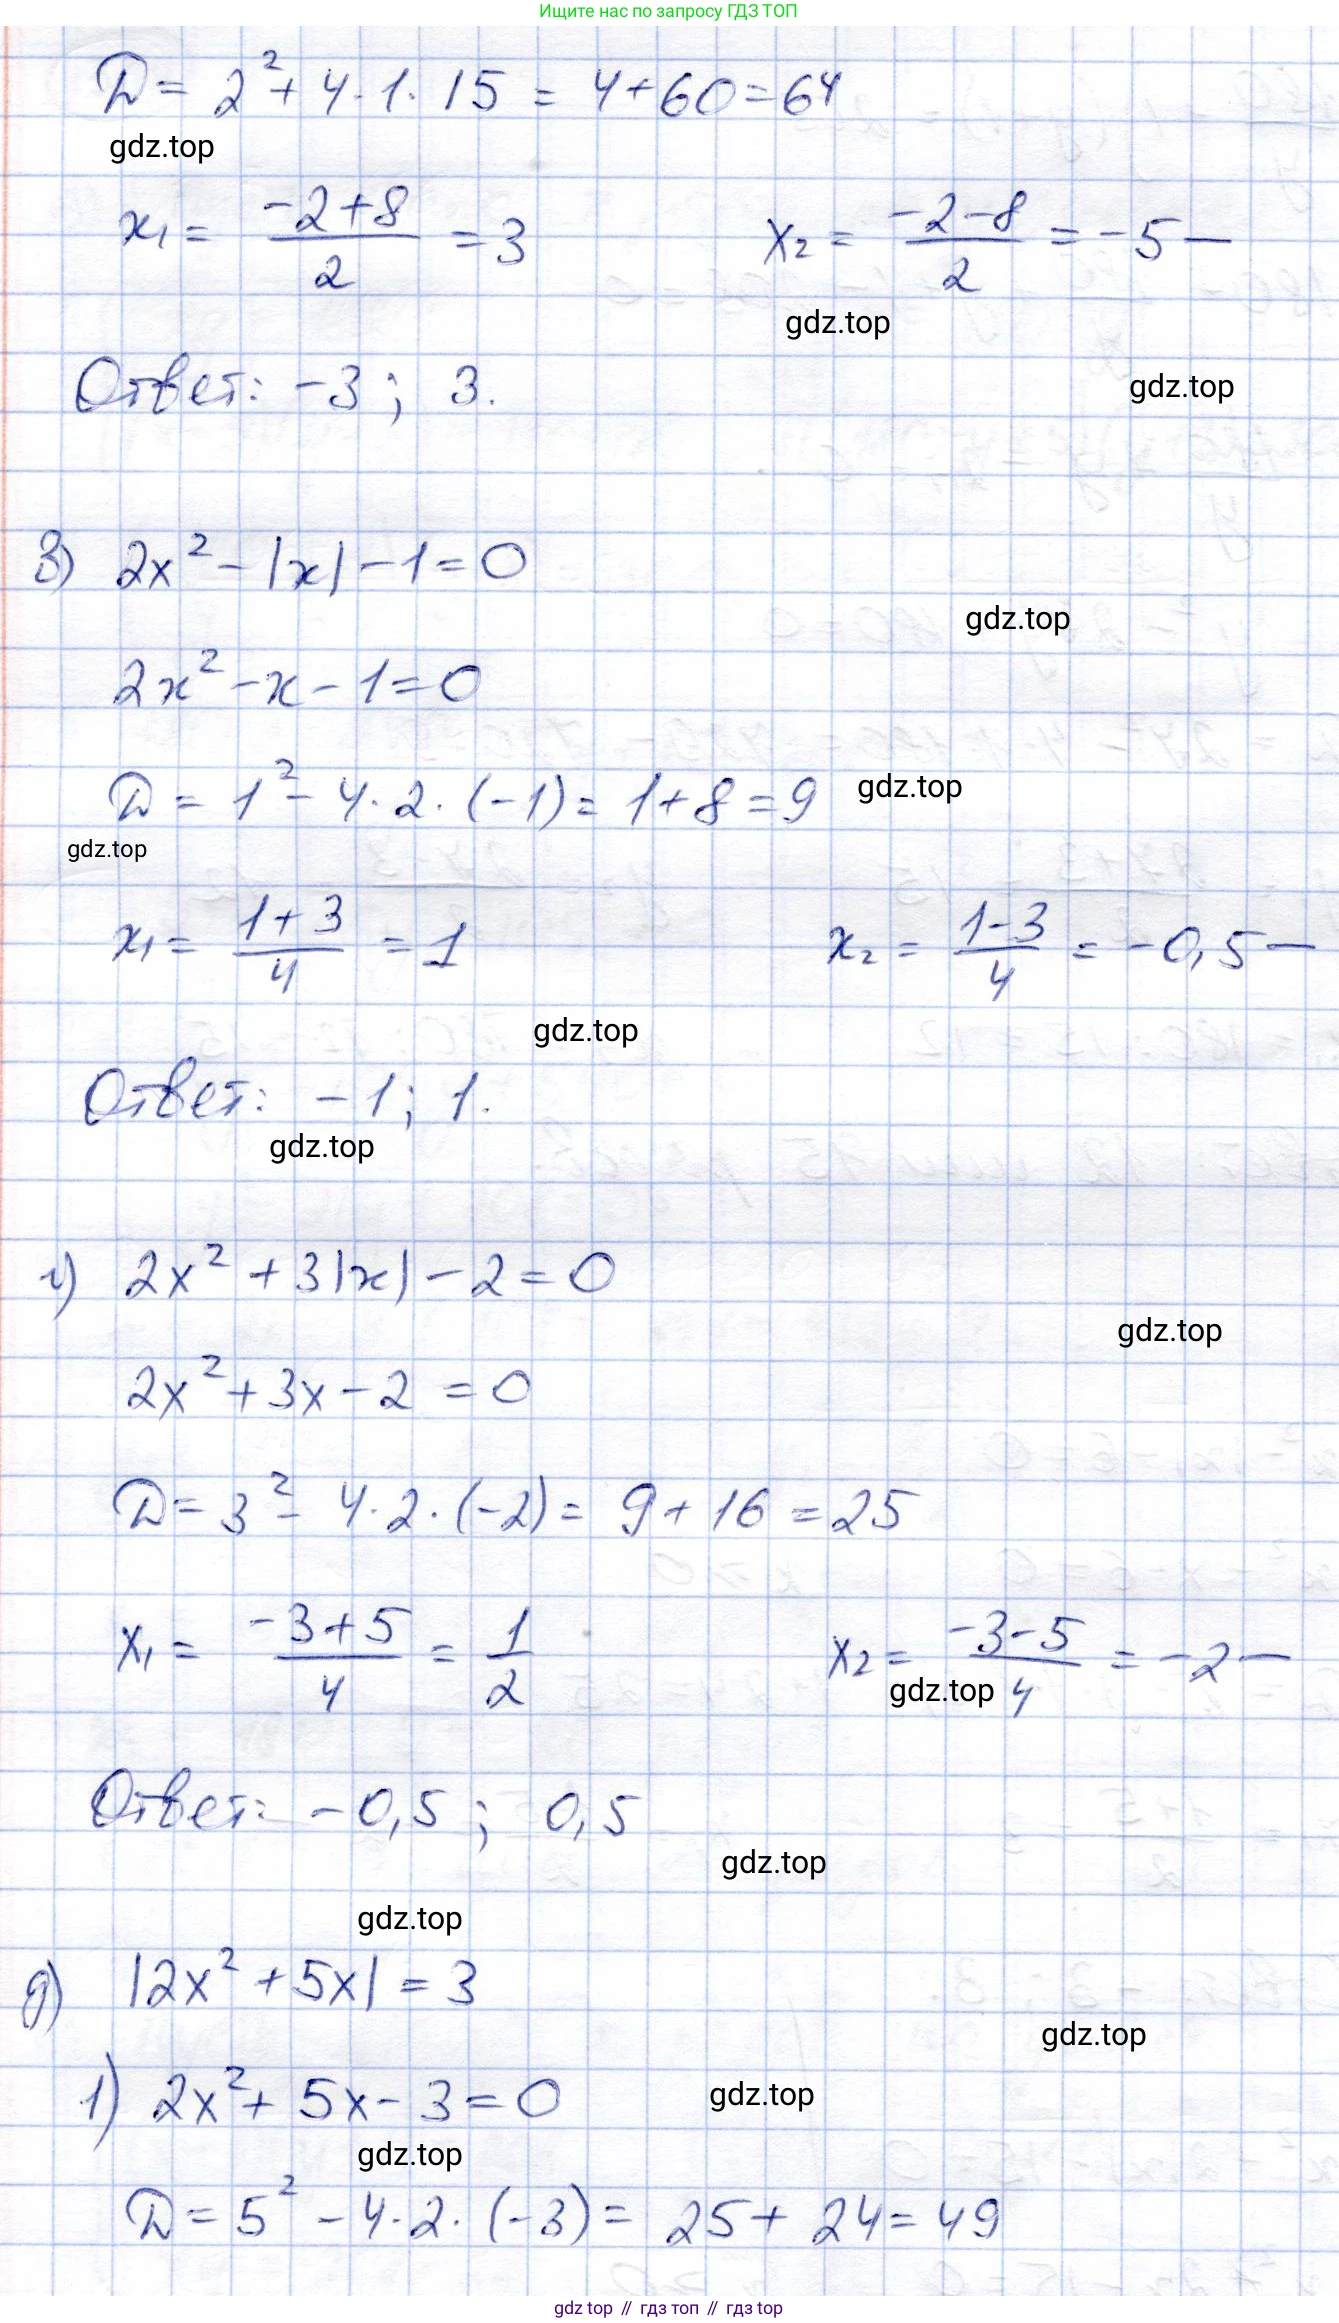 Ищите нас по запросу ГДЗ ТОП
D = 2² + 4 · 1 · 15 = 4 + 60 = 64
gdz.top
x₁ = (-2+8)/2 = 3    x₂ = (-2-8)/2 = -5 —
gdz.top
Ответ: -3; 3.
gdz.top
в) 2x² - |x| - 1 = 0
gdz.top
2x² - x - 1 = 0
D = 1² - 4 · 2 · (-1) = 1 + 8 = 9
gdz.top
gdz.top
x₁ = (1+3)/4 = 1    x₂ = (1-3)/4 = -0,5 —
gdz.top
Ответ: -1; 1.
gdz.top
г) 2x² + 3|x| - 2 = 0
gdz.top
2x² + 3x - 2 = 0
D = 3² - 4 · 2 · (-2) = 9 + 16 = 25
x₁ = (-3+5)/4 = 1/2    x₂ = (-3-5)/4 = -2 —
gdz.top
Ответ: -0,5; 0,5
gdz.top
gdz.top
д) |2x² + 5x| = 3
gdz.top
1) 2x² + 5x - 3 = 0
gdz.top
gdz.top
D = 5² - 4 · 2 · (-3) = 25 + 24 = 49
gdz топ // гдз топ // гдз тор